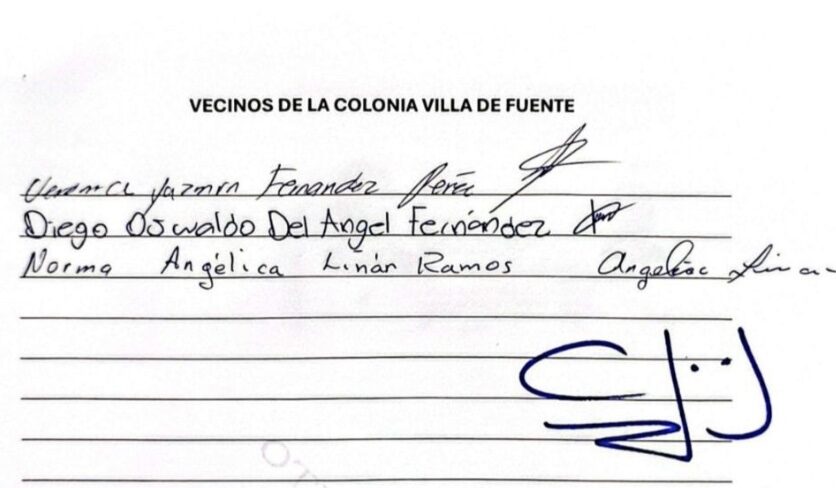 VECINOS DE LA COLONIA VILLA DE FUENTE
Veronica Yazmin Fernandez Perez
Diego Oswaldo Del Angel Fernández
Norma Angélica Liñán Ramos Angelica Liñan